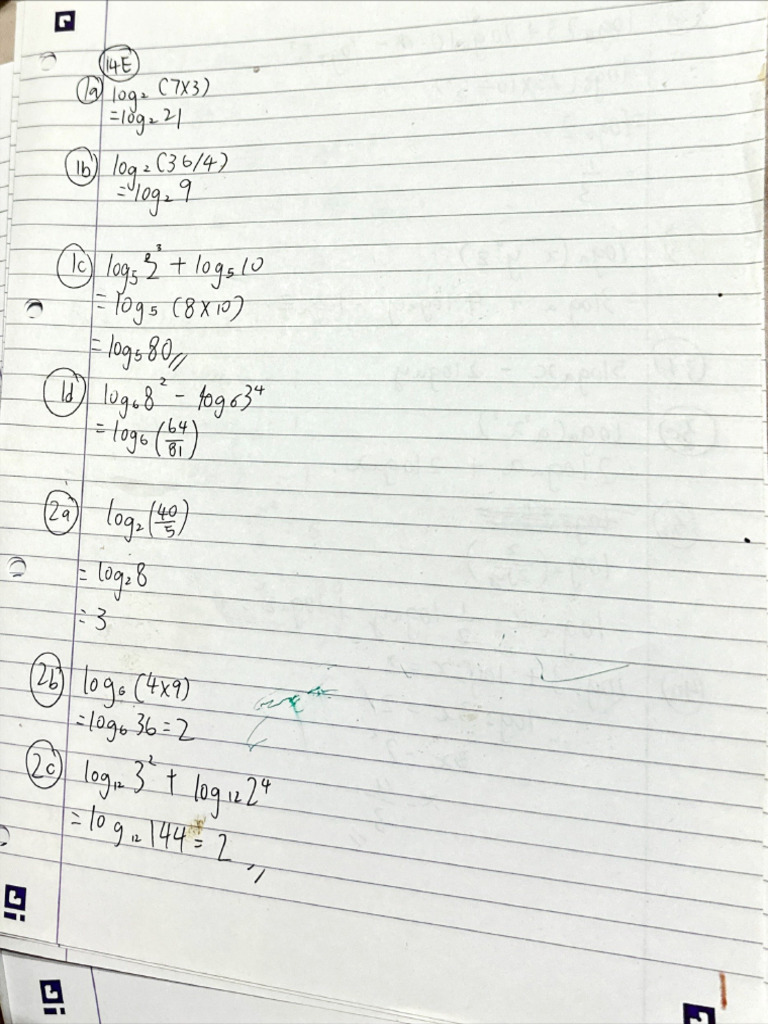 14E
1a log₂ (7x3)
= log₂ 21
1b log₂ (36/4)
= log₂ 9
1c log₅ 2³ + log₅ 10
= log₅ (8x10)
= log₅ 80 //
1d log₆ 8² - log₆ 3⁴
= log₆ (64/81)
2a log₂ (40/5)
= log₂ 8
= 3
2b log₆ (4x9)
= log₆ 36 = 2
2c log₁₂ 3² + log₁₂ 2⁴
= log₁₂ 144 = 2 //